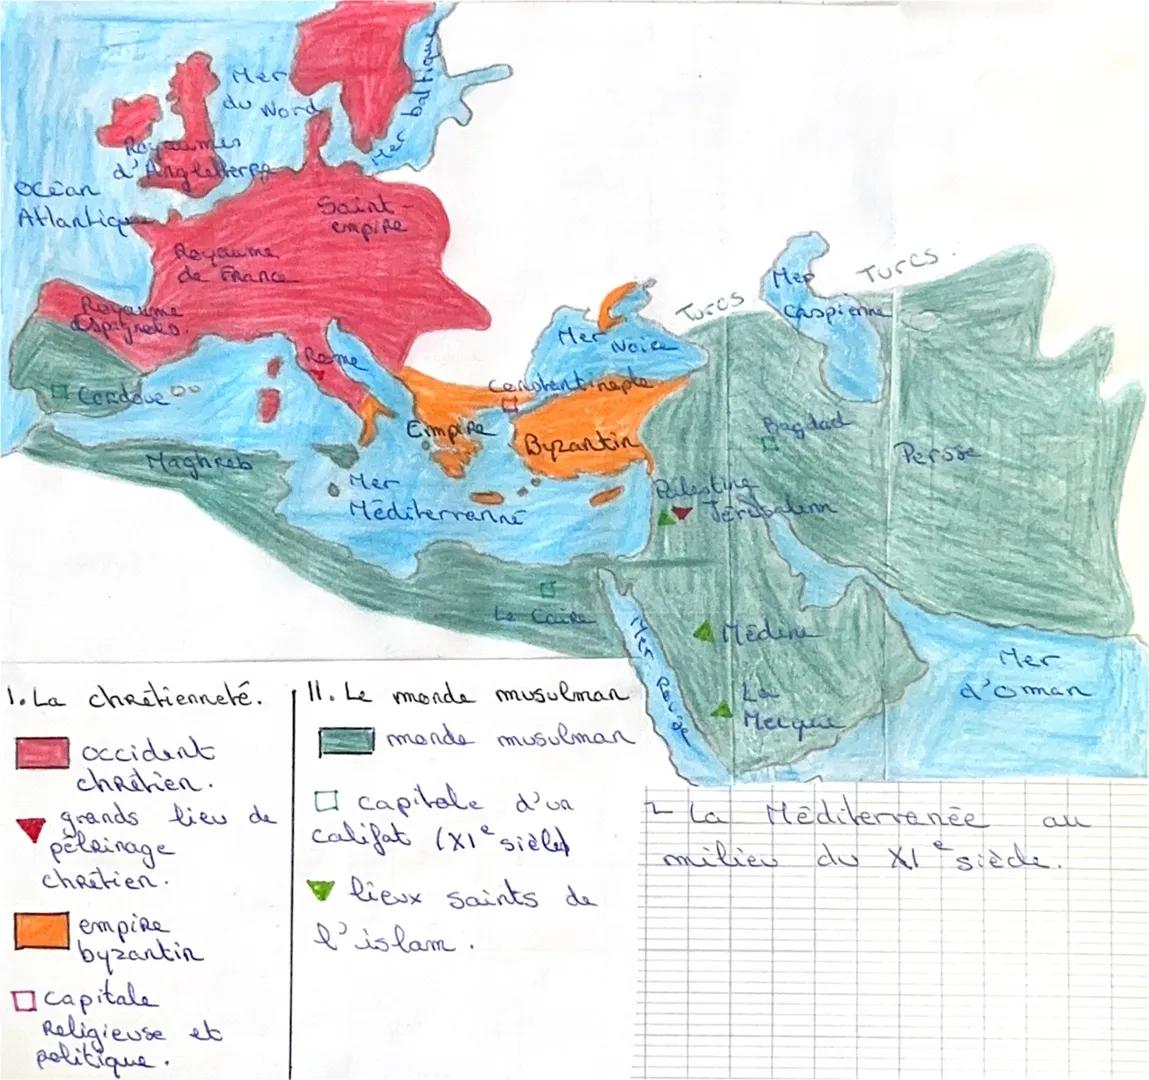 Mer
du Nord
Mer baltique
Royaumes
d'Angleterre
Océan
Atlantique
Saint-
empire
Royaume
de France
Royaume
Espagnols.
Rome
Cordoue
Maghreb
Mer
Méditerranné
Empire
Byzantin
Constantinople
Mer Noire
Turcs
Mer
Caspienne
Turcs.
Bagdad
Perse
Palestine
Jérusalem
Le Caire
Mer Rouge
Médine
La
Mecque
Mer
d'oman
I. La chrétienneté.
occident
chrétien.
grands lieu de
pélrinage
chrétien.
empire
byzantin
capitale
religieuse et
politique.
II. Le monde musulman
monde musulman
capitale d'un
califat (XIe sièle)
lieux saints de
l'islam.
2 La Méditerranée au
milieu du XIe siècle.